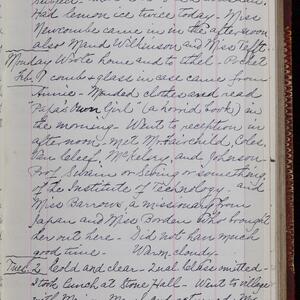 Had lemon ice twice today - Miss
Newcombe came in in the afternoon
also Maud Wilkinson and Miss Tefft.
Monday Wrote home and to Ethel - Pocket
Feb. 1 comb & glass in case came from
Annie - Mended clothes and read
"Papa's Own Girl" (a horrid book) in
the morning - Went to reception in
afternoon - Met Mr Fairchild, Coles,
Van Cleef, McKelvy, and Johnson
Prof. Swain or Sebring or something,
of the Institute of Technology - and
Miss Barrows, a missionary from
Japan and Miss Borden who brought
her out here - Did not have much
good time - Warm, cloudy -
Tues. 2 Cold and clear - Qual. Class omitted -
Took lunch at Stone Hall - Went to village
with